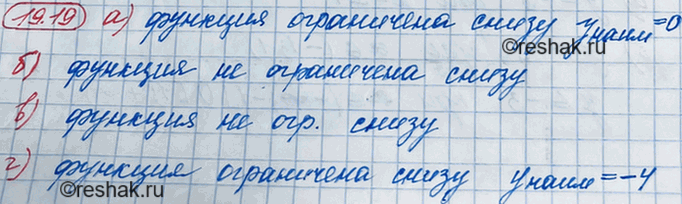 19.19 а) функция ограничена снизу yнаим=0
©reshak.ru
б) функция не ограничена снизу
в) функция не огр. снизу
г) функция ограничена снизу yнаим=-4
©reshak.ru